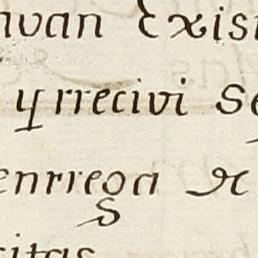 nvan Exis
yrrecivi Se
enrrega de
sitas